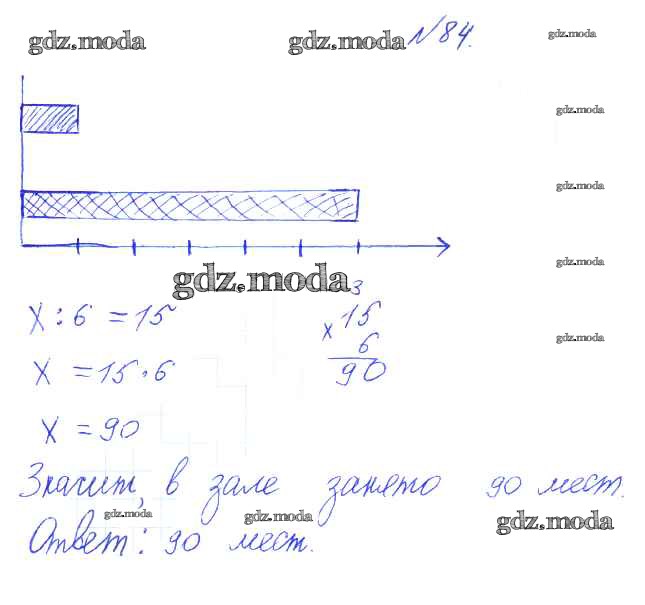 gdz.moda gdz.moda №84. gdz.moda
gdz.moda
gdz.moda
gdz.moda
gdz.moda
x : 6 = 15
3
× 15
6
90
gdz.moda
x = 15 · 6
x = 90
Значит, в зале занято 90 мест.
gdz.moda gdz.moda gdz.moda
Ответ: 90 мест.